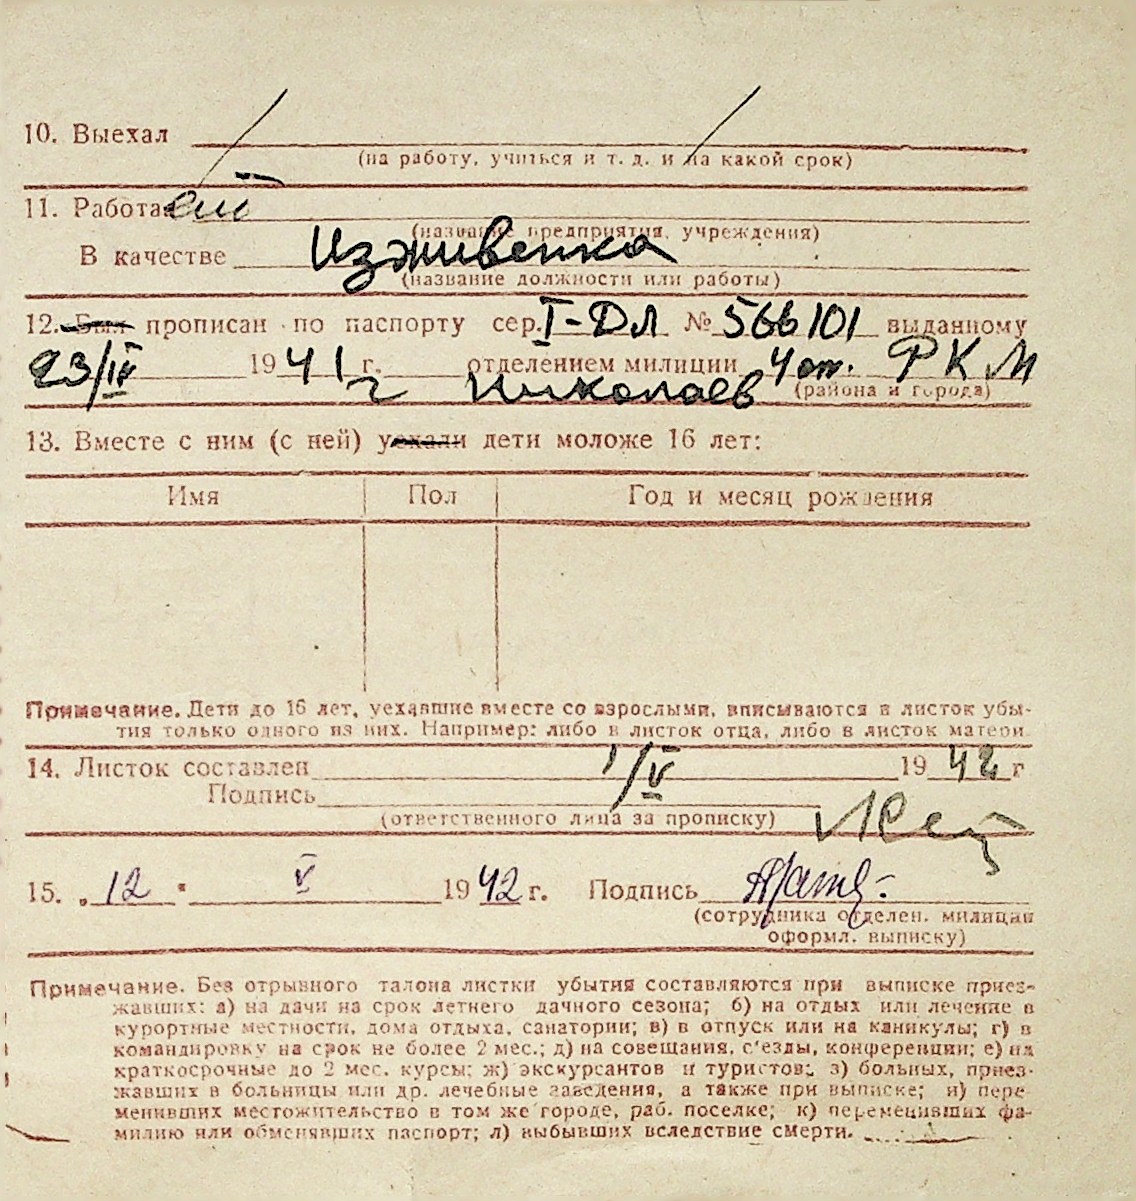 10. Выехал
(на работу, учиться и т. д. и на какой срок)
11. Работа
(название предприятия, учреждения)
В качестве Изживенка
(название должности или работы)
12. Был прописан по паспорту сер. I-ДЛ № 566101 выданному
23/IV 1941 г. отделением милиции 4 от. РКМ
г Николаев (района и города)
13. Вместе с ним (с ней) уехали дети моложе 16 лет:
Имя Пол Год и месяц рождения
Примечание. Дети до 16 лет, уехавшие вместе со взрослыми, вписываются в листок убы-
тия только одного из них. Например: либо в листок отца, либо в листок матери.
14. Листок составлен 1/V 1942 г
Подпись
(ответственного лица за прописку)
15. „12" V 1942 г. Подпись
(сотрудника отделен. милиции
оформл. выписку)
Примечание. Без отрывного талона листки убытия составляются при выписке приез-
жавших: а) на дачи на срок летнего дачного сезона; б) на отдых или лечение в
курортные местности, дома отдыха, санатории; в) в отпуск или на каникулы; г) в
командировку на срок не более 2 мес.; д) на совещания, с'езды, конференции; е) на
краткосрочные до 2 мес. курсы; ж) экскурсантов и туристов; з) больных, приез-
жавших в больницы или др. лечебные заведения, а также при выписке; и) пере-
менивших местожительство в том же городе, раб. поселке; к) переменивших фа-
милию или обменявших паспорт; л) выбывших вследствие смерти.